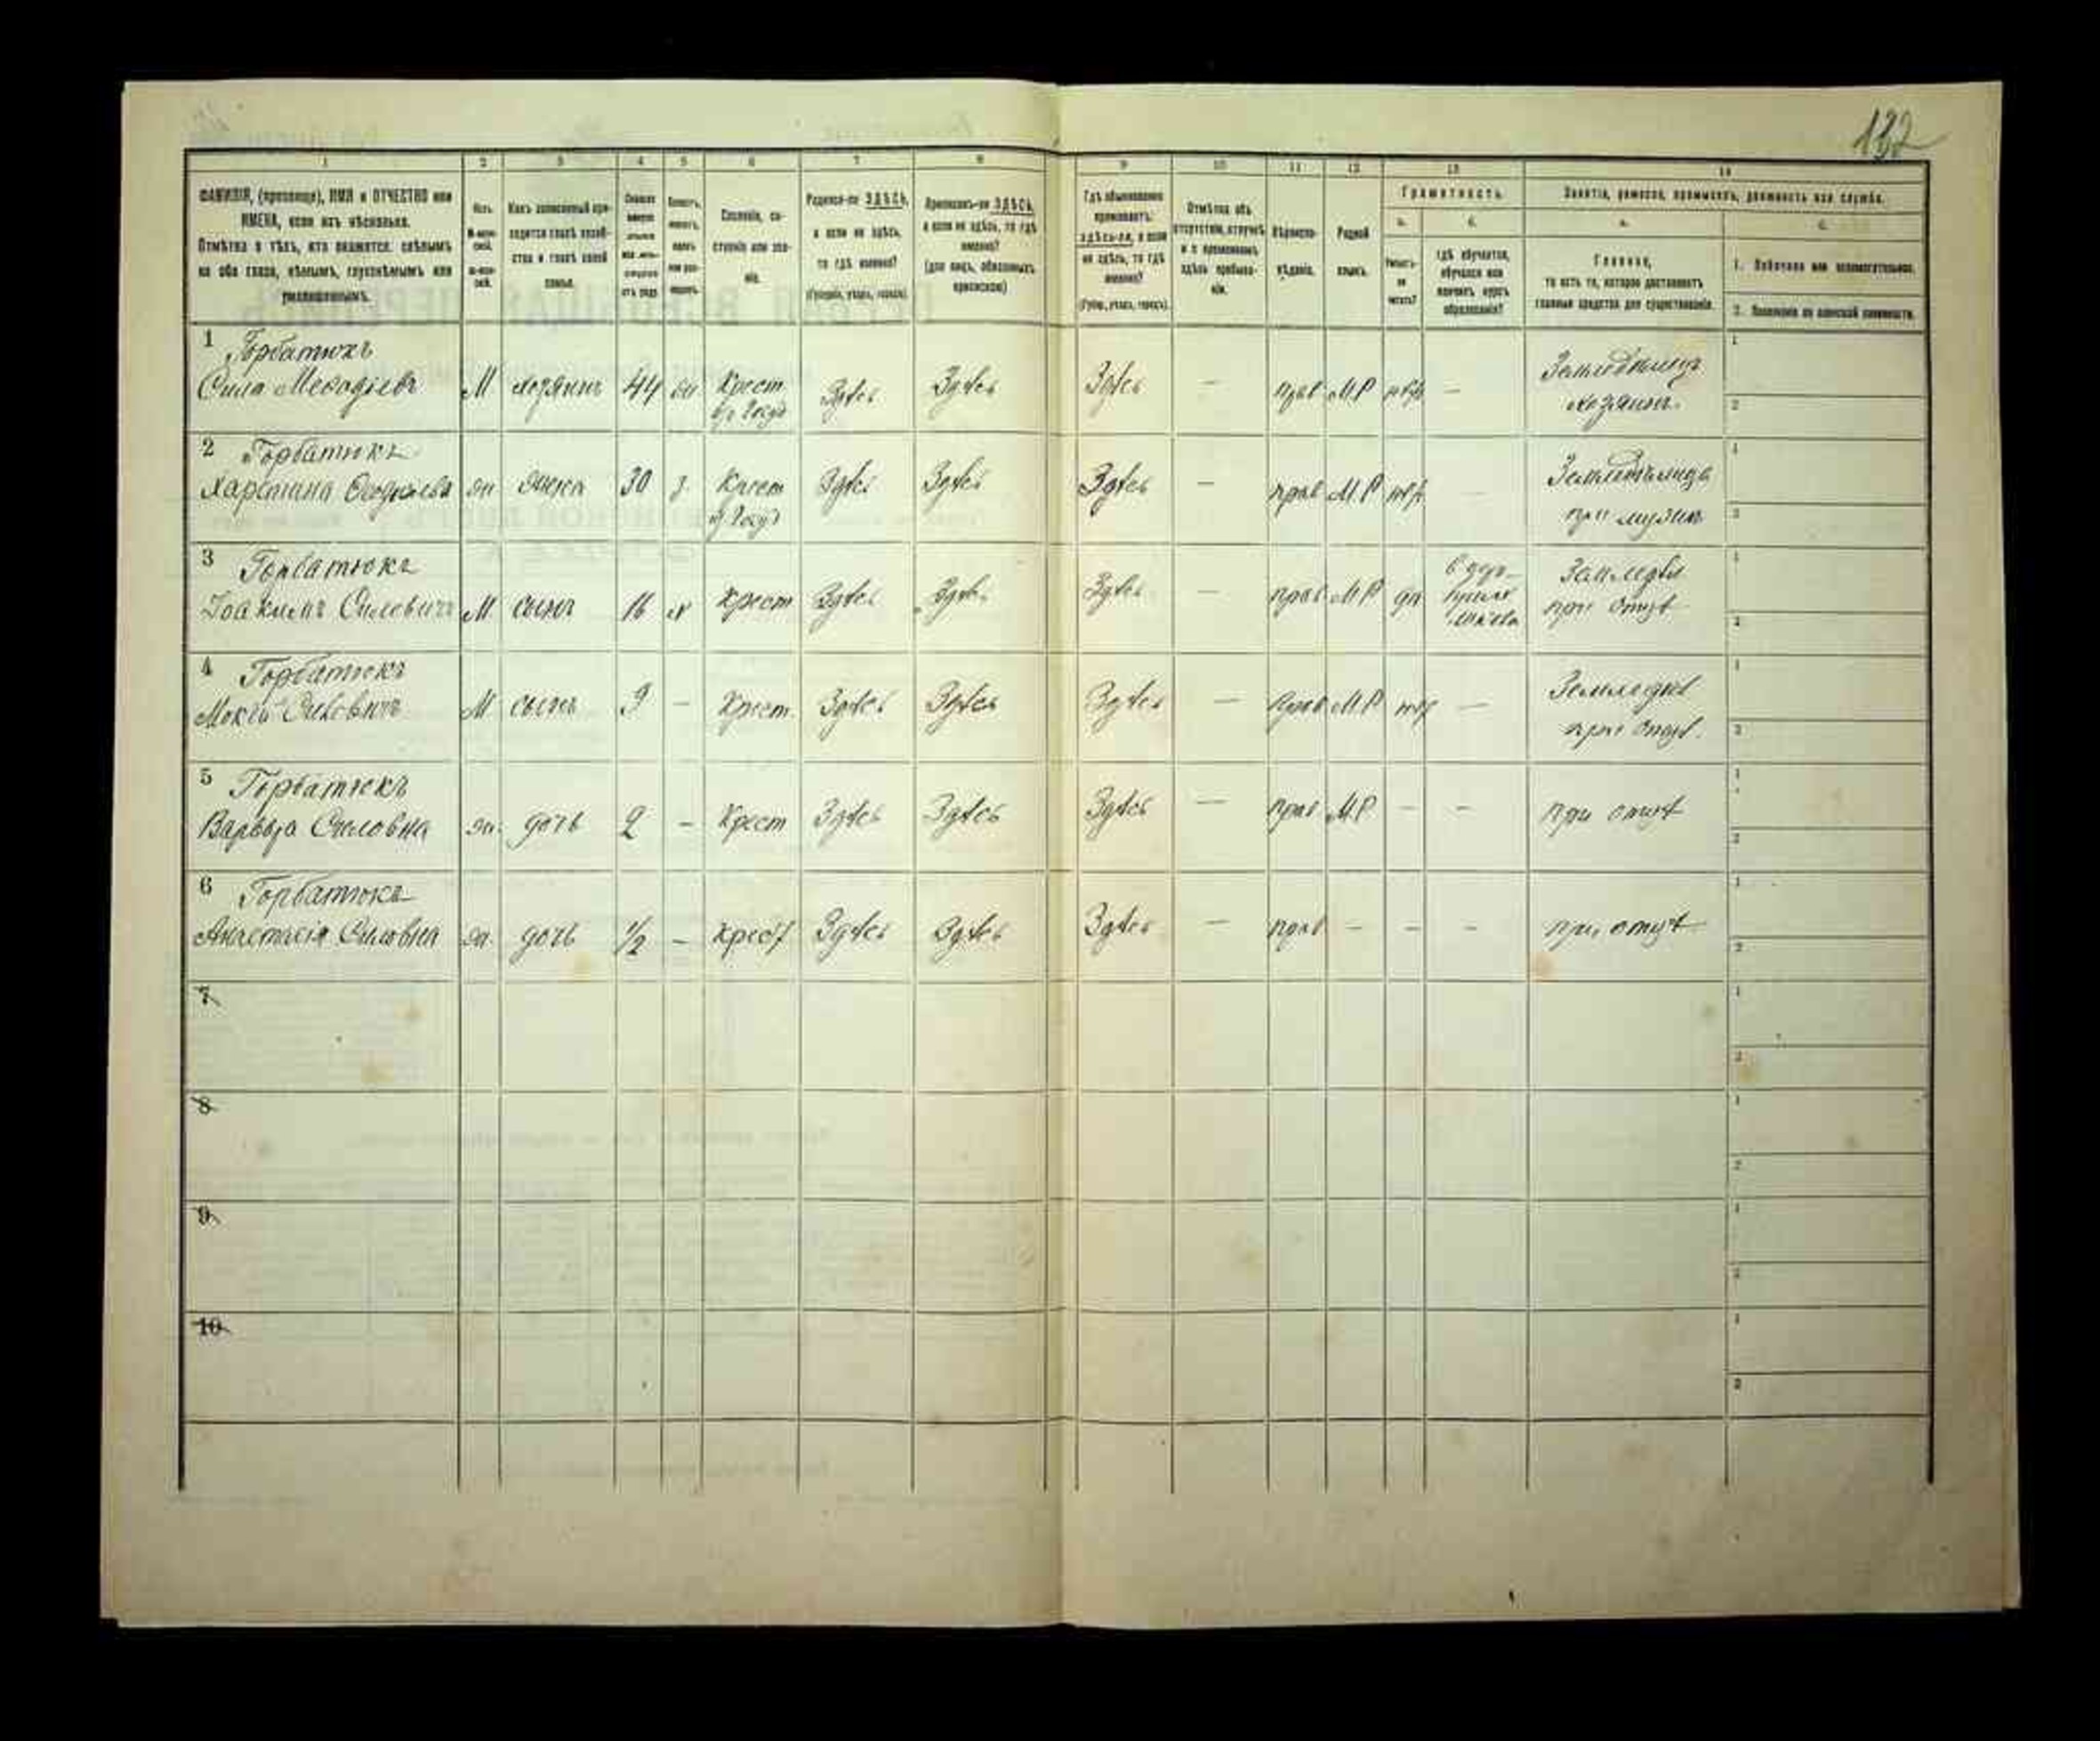 132
1 2 3 4 5 6 7 8 9 10 11 12 13 14
ФАМИЛІЯ, (прозвище), ИМЯ и ОТЧЕСТВО или
ИМЕНА, если ихъ нѣсколько.
Отмѣтка о тѣхъ, кто окажется: слѣпымъ
на оба глаза, нѣмымъ, глухонѣмымъ или
умалишеннымъ.
Полъ.
Какъ записанный при-
ходится главѣ хозяй-
ства и главѣ своей
семьи.
Сословіе, со-
стояніе или зва-
ніе.
Родился-ли ЗДѢСЬ,
а если не здѣсь,
то гдѣ именно?
(Губернія, уѣздъ, городъ).
Приписанъ-ли ЗДѢСЬ,
а если не здѣсь, то гдѣ
именно?
(для лицъ, обязанныхъ
припискою)
Гдѣ обыкновенно
проживаетъ:
здѣсь-ли, а если
не здѣсь, то гдѣ
именно?
(Губер., уѣздъ, городъ).
Отмѣтка объ
отсутствіи, отлучкѣ
и о временномъ
здѣсь пребыва-
ніи.
Вѣроиспо-
вѣданіе.
Родной
языкъ.
Грамотность.
а. б.
Умѣетъ-
ли
читать?
гдѣ обучается,
обучался или
кончилъ курсъ
образованія?
Занятіе, ремесло, промыселъ, должность или служба.
а. б.
Главное,
то есть то, которое доставляетъ
главныя средства для существованія.
1. Побочное или вспомогательное.
2. Положеніе по воинской повинности.
1 Горбатюкъ
Сила Мефодіевъ М хозяинъ 44 Крест Здѣсь Здѣсь Здѣсь — прав М.Р нѣт — Земледѣлецъ
хозяинъ. 1 2
2 Горбатюкъ
Харетина жена 30 з. Крест Здѣсь Здѣсь Здѣсь — прав М.Р нѣт — Земледѣлецъ
при мужѣ 1 2
3 Горбатюкъ
Іоакимъ Силовичъ М сынъ 16 х Крест Здѣсь Здѣсь Здѣсь — прав М.Р да Земледѣл
при отцѣ 1 2
4 Горбатюкъ
Мокей Силовичъ М сынъ 9 — Крест. Здѣсь Здѣсь Здѣсь — прав М.Р нѣт — Земледѣл
при отцѣ. 1 2
5 Горбатюкъ
Варвара Силовна ж. дочь 2 — Крест Здѣсь Здѣсь Здѣсь — прав М.Р — — при отцѣ 1 2
6 Горбатюкъ
Анастасія Силовна ж. дочь 1/2 — Крест Здѣсь Здѣсь Здѣсь — прав — — — при отцѣ 1 2
7 1 2
8 1 2
9 1 2
10 1 2